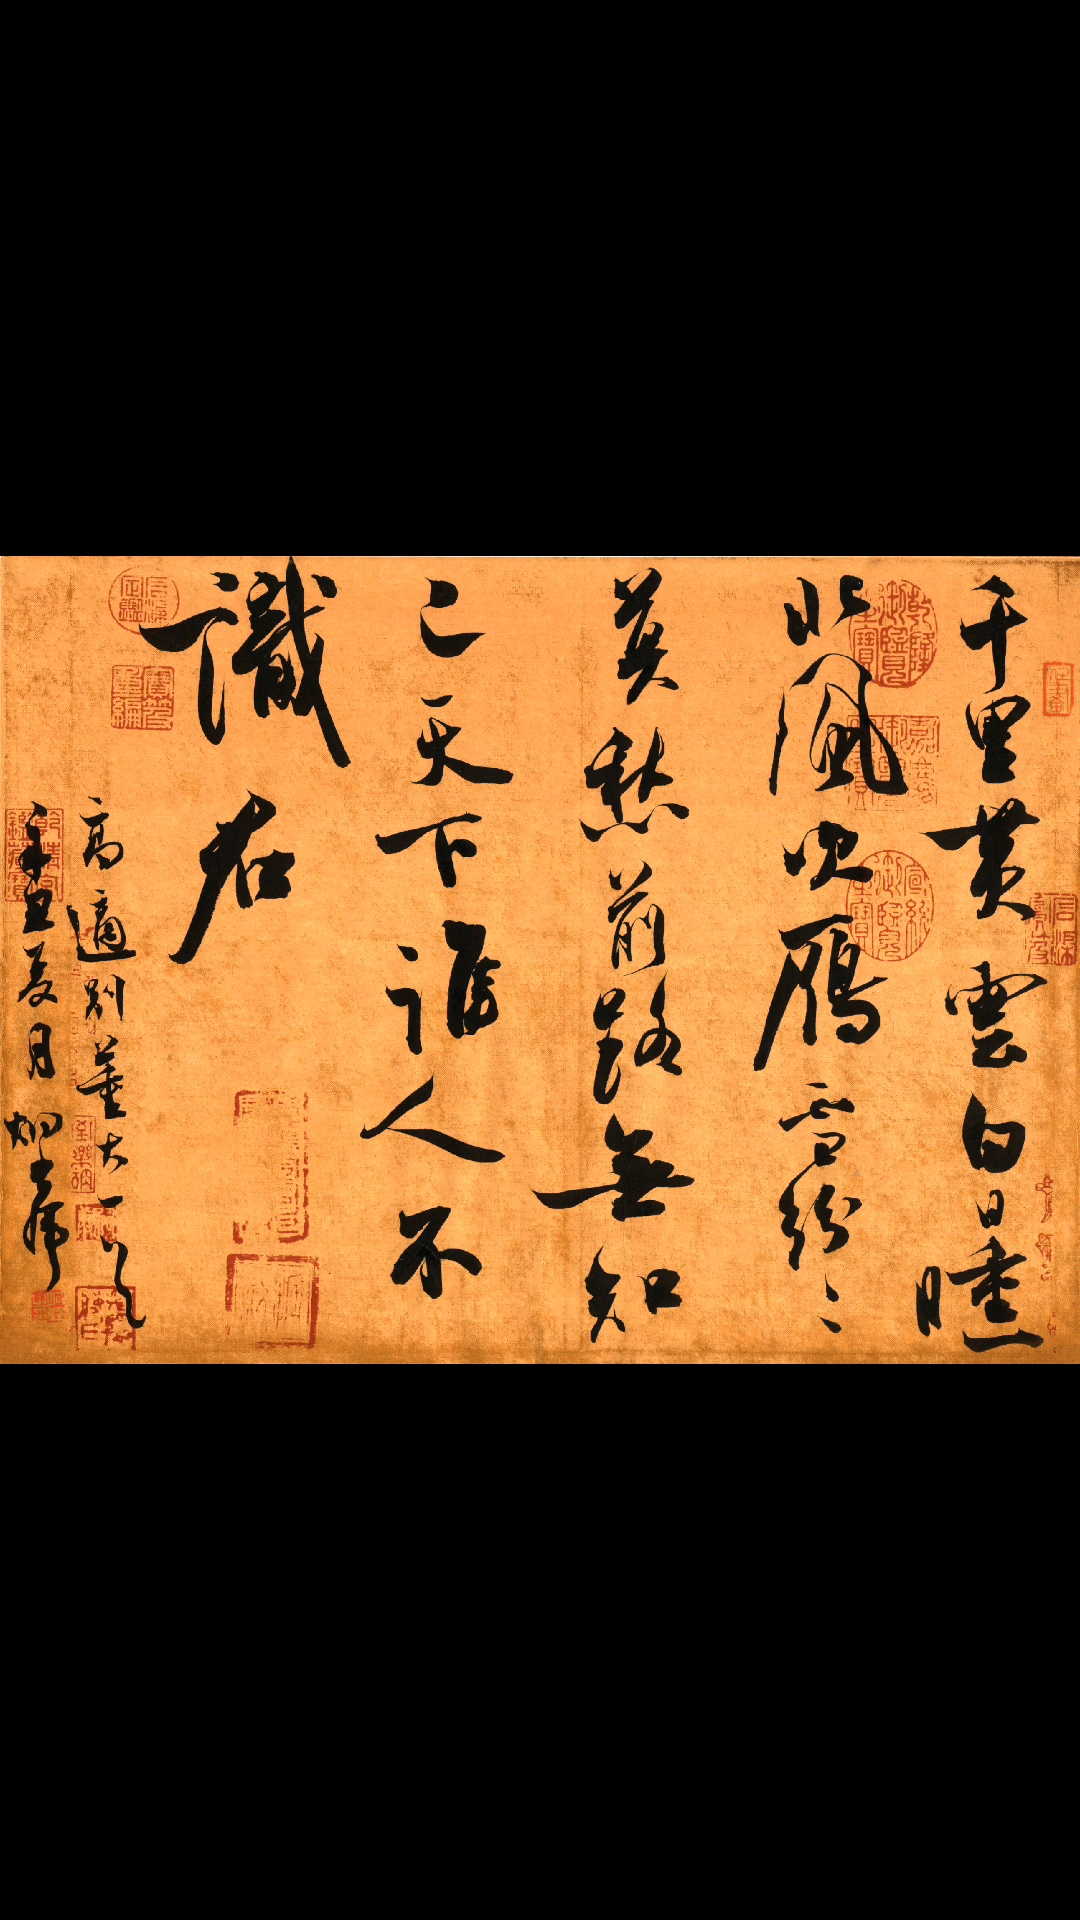 千里黄雲白日曛
北風吹鴈雪紛〻
莫愁前路無知
己天下誰人不
識君
高適別董大一首
辛丑夏月